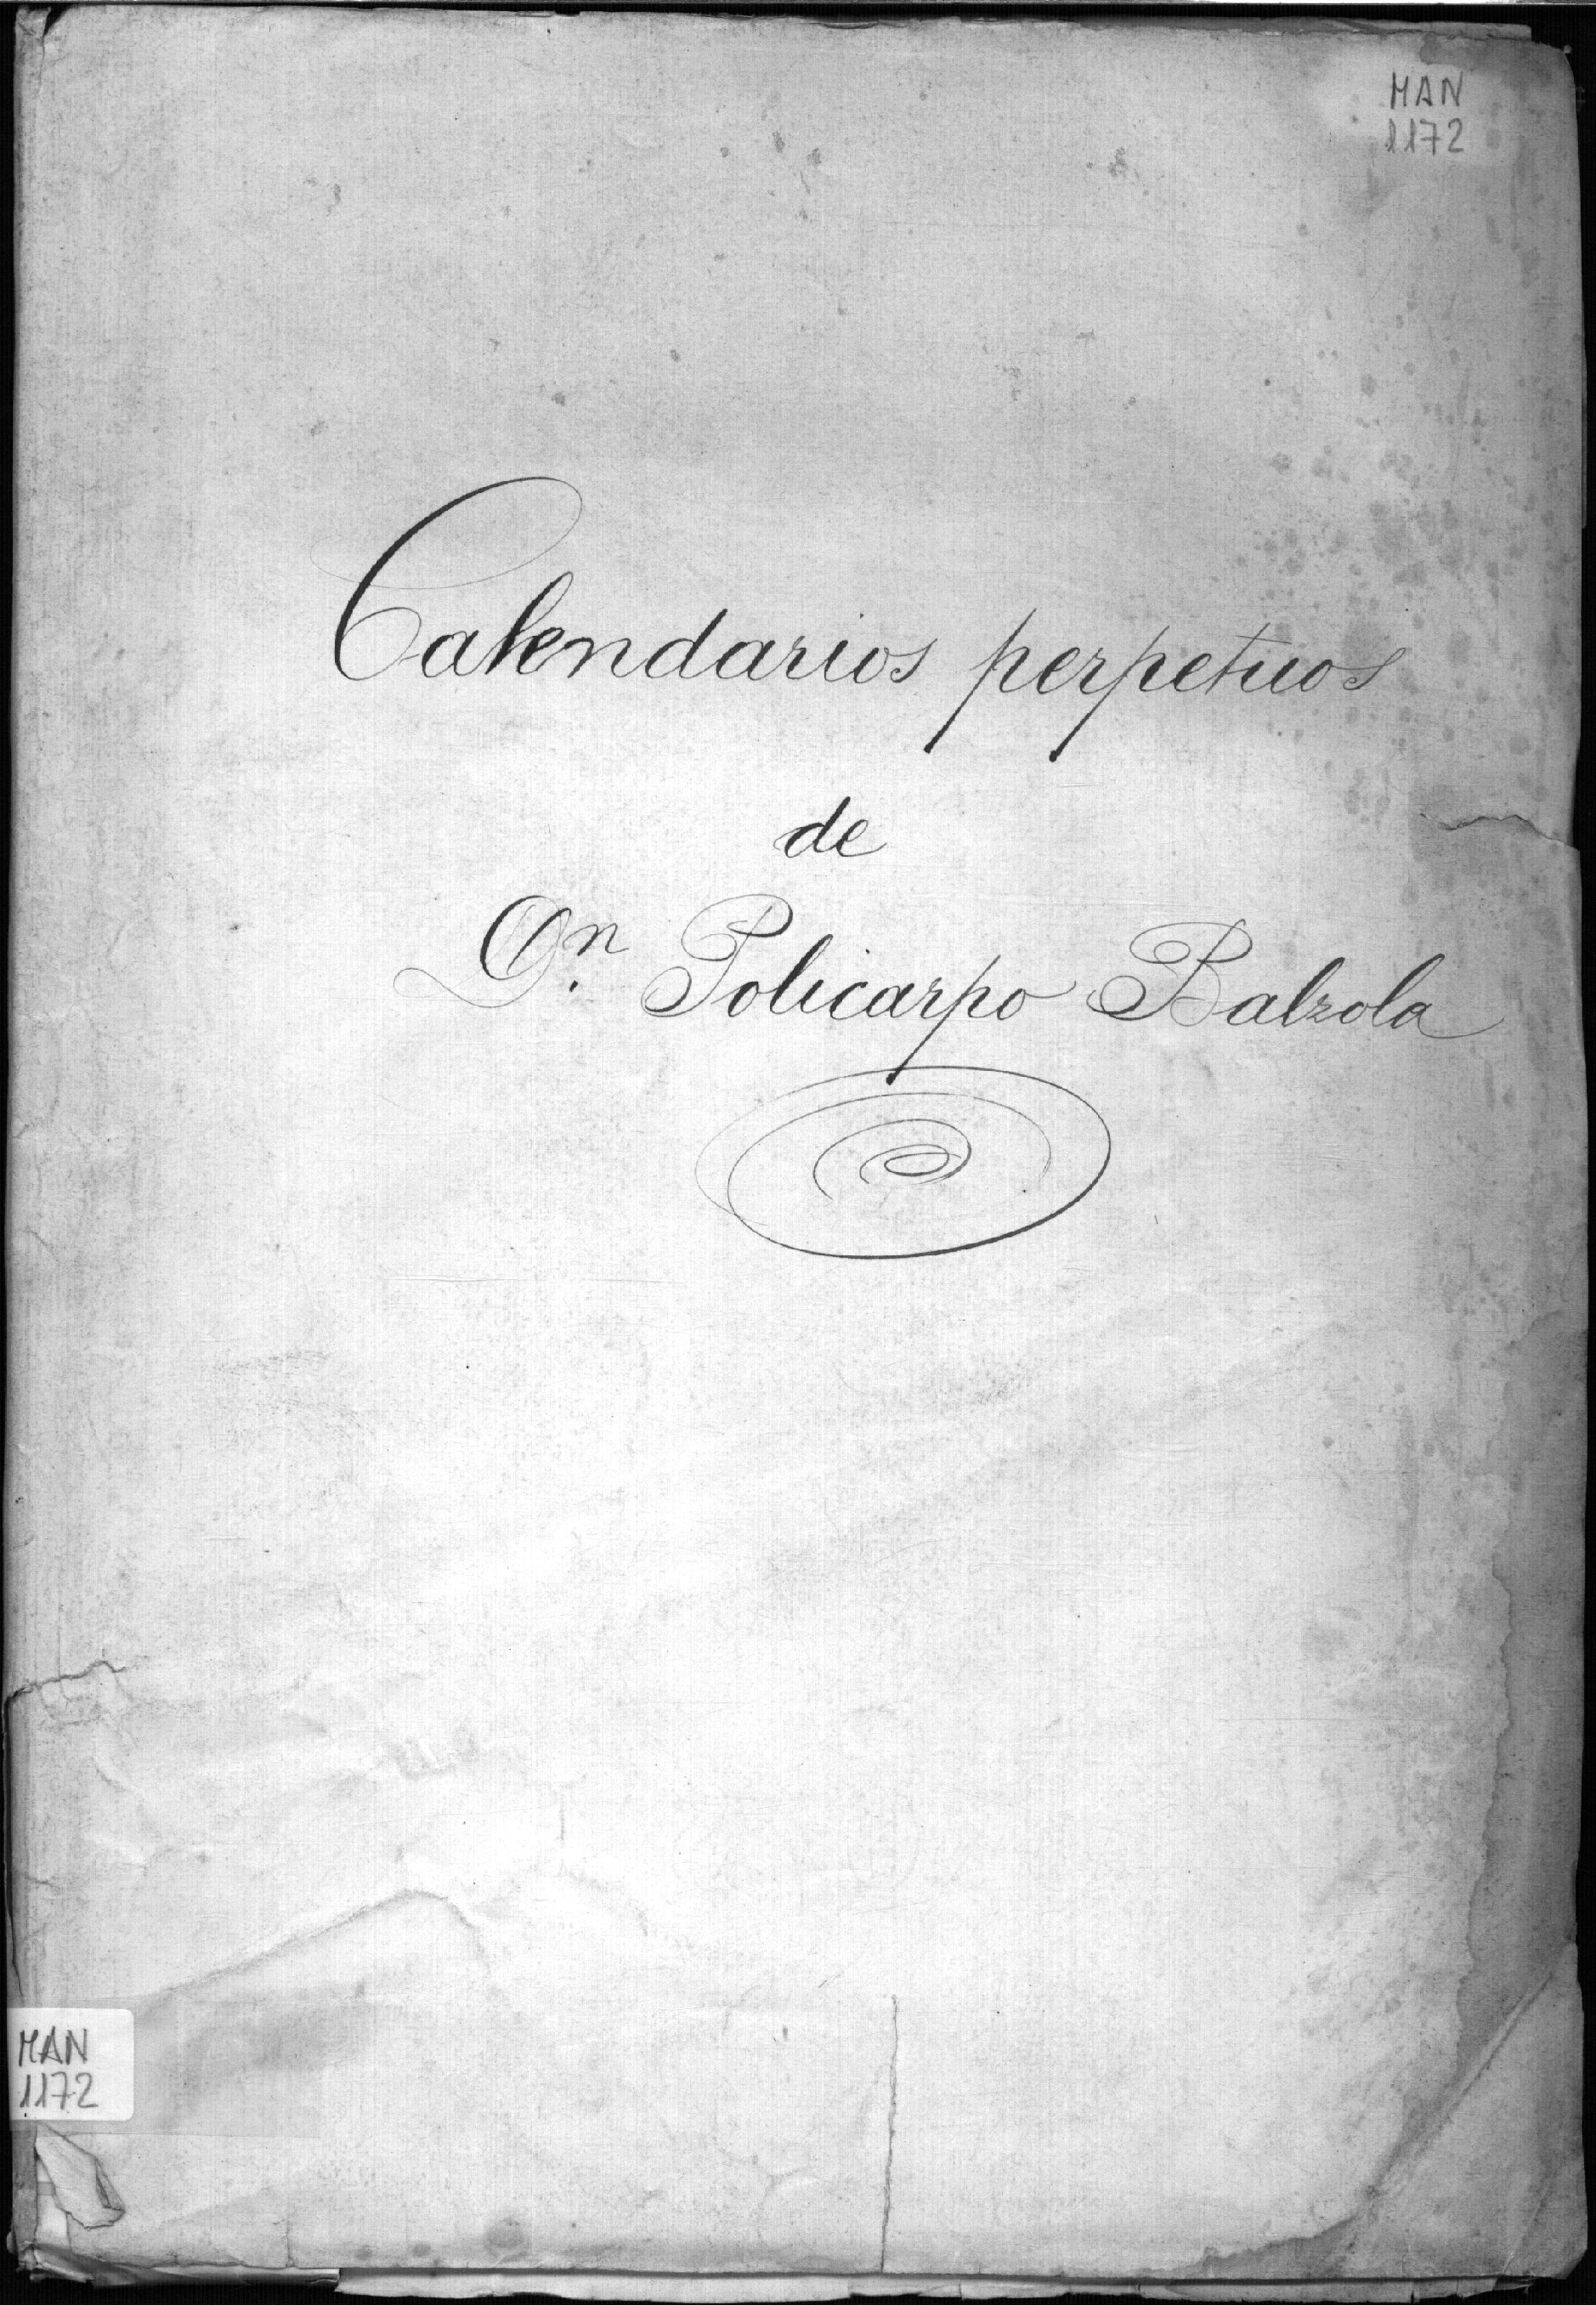 MAN
1172
Calendarios perpetuos
de
Dn. Policarpo Balzola
MAN
1172